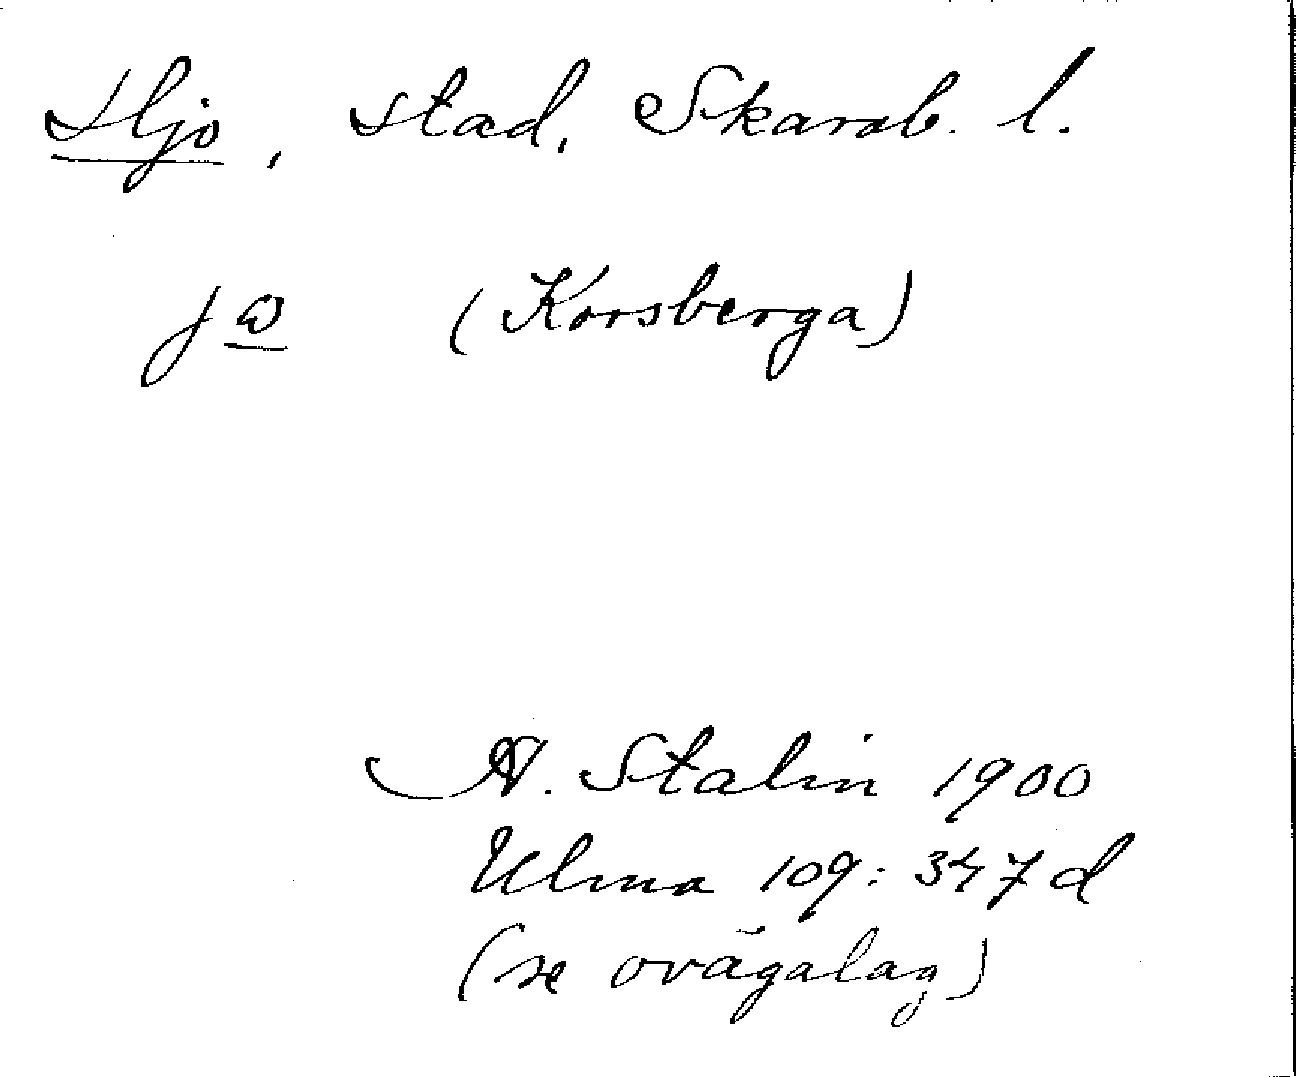 Hjo, stad, Skarab. l.
jω (Korsberga)
A. Stalin 1900
Ulma 109: 347 d
(se ovägalag)